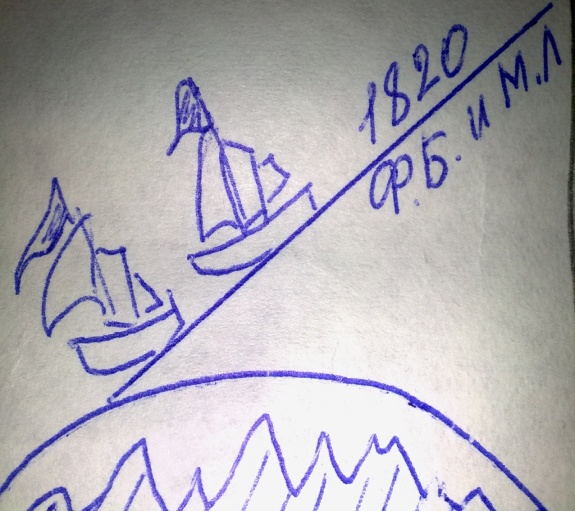 1820
Ф.Б. и М.Л